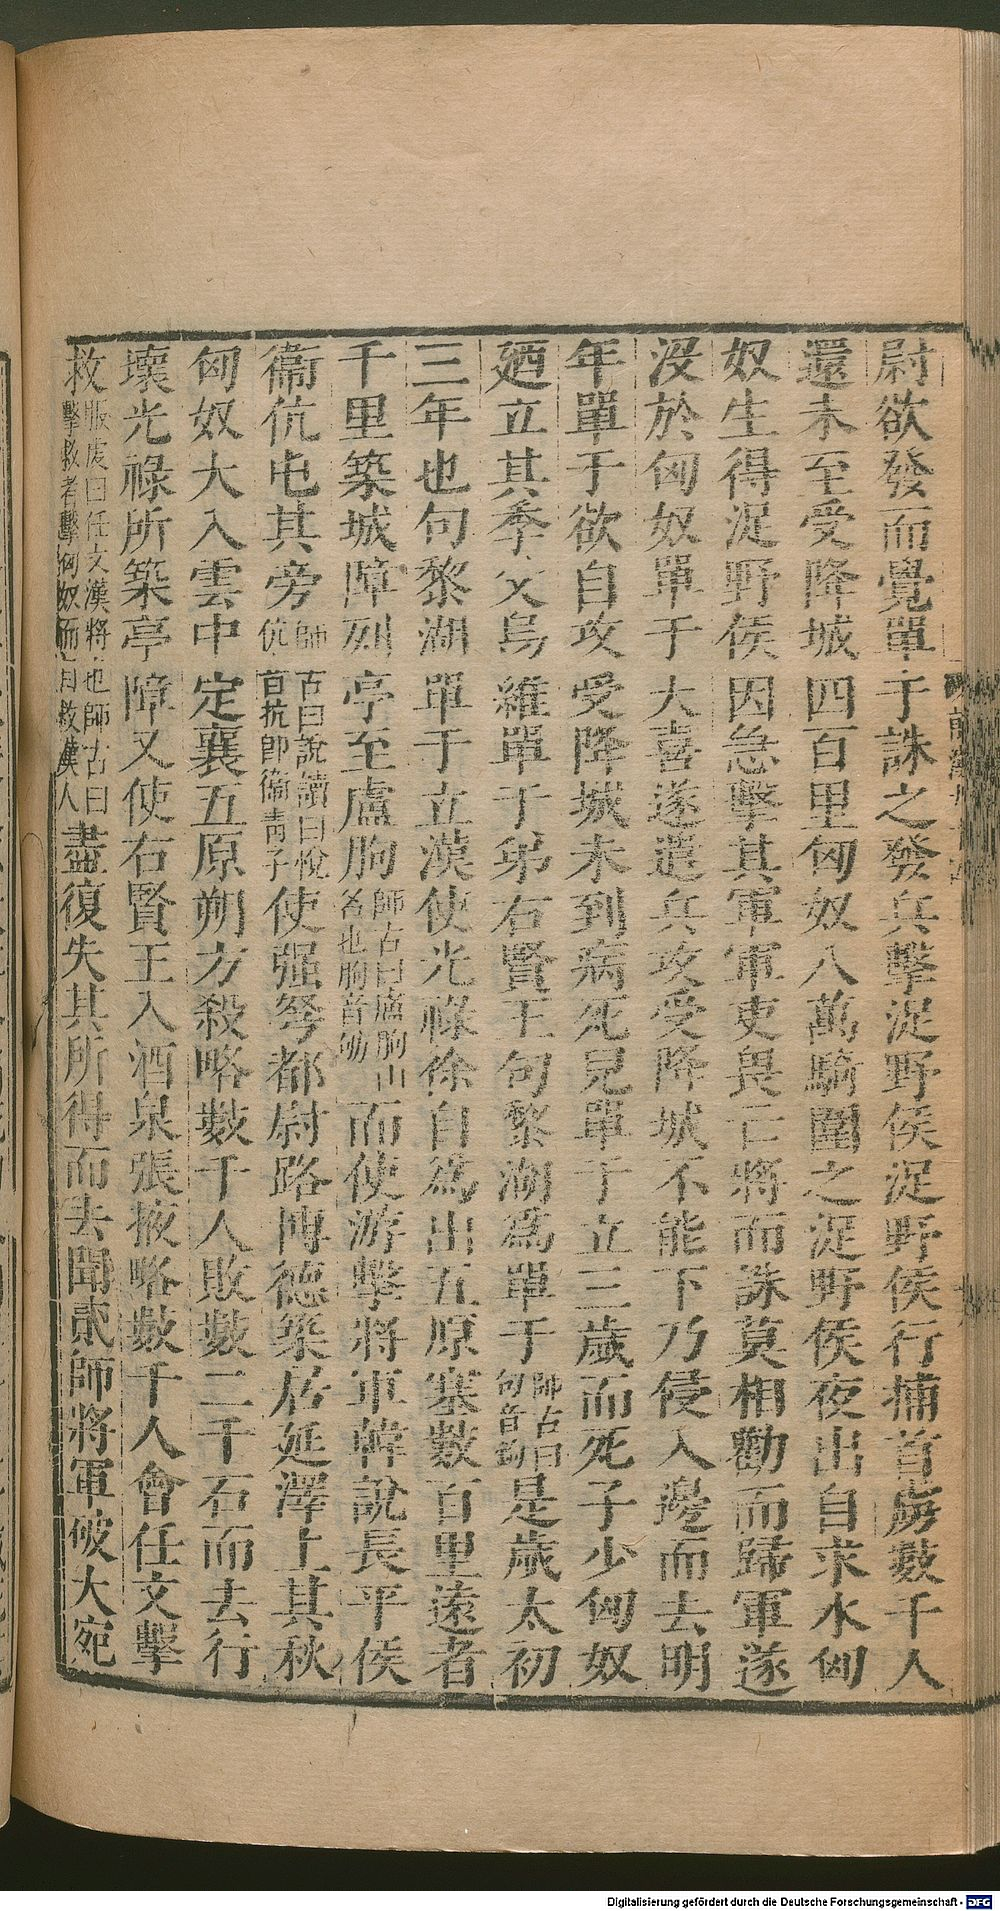 尉欲發而覺單于誅之發兵擊浞野侯浞野侯行捕首虜數千人
還未至受降城四百里匈奴八萬騎圍之浞野侯夜出自求水匈
奴生得浞野侯因急擊其軍軍吏畏亡將而誅莫相勸而歸軍遂
沒於匈奴單于大喜遂遣兵攻受降城不能下乃侵入邊而去明
年單于欲自攻受降城未到病死兒單于立三歲而死子少匈奴
廼立其季父烏維單于弟右賢王句黎湖爲單于師古曰句音鉤是歲太初
三年也句黎湖單于立漢使光祿徐自爲出五原塞數百里遠者
千里築城障列亭至盧朐師古曰盧朐山名也朐音劬而使游擊將軍韓說長平侯
衞伉屯其旁師古曰說讀曰悅伉音抗即衞青子使强弩都尉路博德築居延澤上其秋
匈奴大入雲中定襄五原朔方殺略數千人敗數二千石而去行
壞光祿所築亭障又使右賢王入酒泉張掖略數千人會任文擊
救服虔曰任文漢將也師古曰擊救者擊匈奴而自救漢人盡復失其所得而去聞貳師將軍破大宛
Digitalisierung gefördert durch die Deutsche Forschungsgemeinschaft - DFG